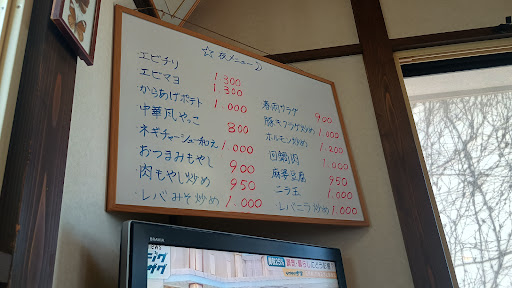 ☆夜メニュー♪
エビチリ 1.300
エビマヨ 1.300
からあげポテト 1.000
中華風やっこ 800
ネギチャーシュー和え 1.000
おつまみもやし 900
肉もやし炒め 950
・レバみそ炒め 1.000
春雨サラダ 900
豚キクラゲ炒め 1.000
ホルモン炒め 1.200
回鍋肉 1.000
麻婆豆腐 950
ニラ玉
・レバニラ炒め 1.000
BRAVIA
ジグ
ザグ